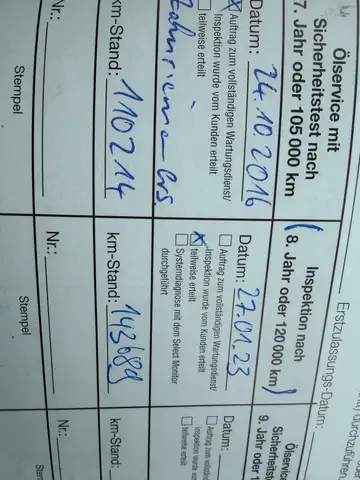 Ölservice mit
Sicherheitstest nach
7. Jahr oder 105 000 km
Datum: 24.10.2016
Auftrag zum vollständigen Wartungsdienst/
Inspektion wurde vom Kunden erteilt
teilweise erteilt
km-Stand: 110214
Nr.:
Stempel
Erstzulassungs-Datum:
Inspektion nach
( 8. Jahr oder 120 000 km )
Datum: 27.01.23
Auftrag zum vollständigen Wartungsdienst/
Inspektion wurde vom Kunden erteilt
teilweise erteilt
Systemdiagnose mit dem Select Monitor
durchgeführt
km-Stand: 143689
Nr.:
Stempel
durchzuführen
Ölservice
Sicherheits
9. Jahr oder 1
Datum:
Auftrag zum vollständ
Inspektion wurde
teilweise erteilt
km-Stand:
Nr.:
Stem